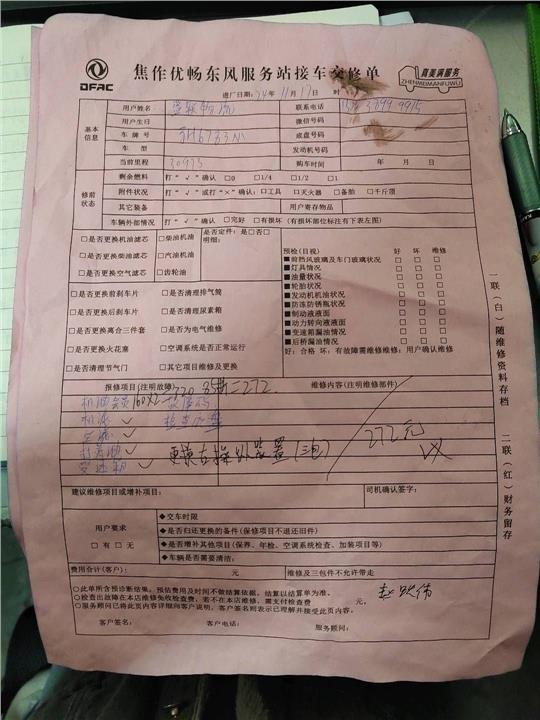 DFAC
焦作优畅东风服务站接车交修单
真美满服务
ZHENMEIMANFUWU
进厂日期: 24年 11月 17日 时
基本信息
用户姓名 联系电话
用户生日 微信号码
车牌号 底盘号码
车型 发动机号码
当前里程 30973 购车时间 年 月 日
修前状态
剩余燃料 打“√”确认 □0 □1/4 □1/2 □1
附件状况 打“√”或打“×”确认: □工具 □灭火器 □备胎 □千斤顶
其它装备 用户寄存物品
车辆外部情况 打“√”确认 □完好 □有损坏 (有损坏部位标注有下表左图)
□是否更换机油滤芯 □柴油机油 是否定件: 是□否□
□是否更换柴油滤芯 □汽油机油 明细:
□是否更换空气滤芯 □齿轮油
□是否更换前刹车片 □是否清理排气筒
□是否更换后刹车片 □是否清理尿素箱
□是否更换离合三件套 □是否为电气维修
□是否更换火花塞 □空调系统是否正常运行
□是否清理节气门 □其它项目维修及更换
预检(目视) 好 坏 维修
■前挡风玻璃及车门玻璃状况 □ □ □
■灯具情况 □ □ □
■油量状况 □ □ □
■轮胎状况 □ □ □
■发动机机油状况 □ □ □
■防冻防锈瓶状况 □ □ □
■制动液液面 □ □ □
■动力转向液液面 □ □ □
■变速箱漏油情况 □ □ □
■后桥漏油情况 □ □ □
好: 合格 坏: 有故障需维修维修: 用户确认维修
报修项目(注明故障) 维修内容(注明维修部件)
160×2=320 85折=272
机滤 √ 检查
272元
更换右操外装置(三包)
建议维修项目或增补项目: 司机确认签字:
用户要求
□有 □无
◆交车时限
◆是否归还更换的备件 (保修项目不退还旧件)
◆是否增补其他项目 (保养、年检、空调系统检查、加装项目等)
◆车辆是否需要清洁:
费用合计(客户): 元 维修及三包件不允许带走
○此单所含预诊断结果, 预估费用及时间不做结算依据, 结算以结算单为准。
○检查出故障在本店维修免收检查费, 若不在本店维修, 需支付检查费 元。
○服务顾问已将此页内容详细向客户说明, 客户签名则表示已理解并接受此页内容。
客户签名: 客户电话: 服务顾问:
一联(白)随维修资料存档
二联(红)财务留存